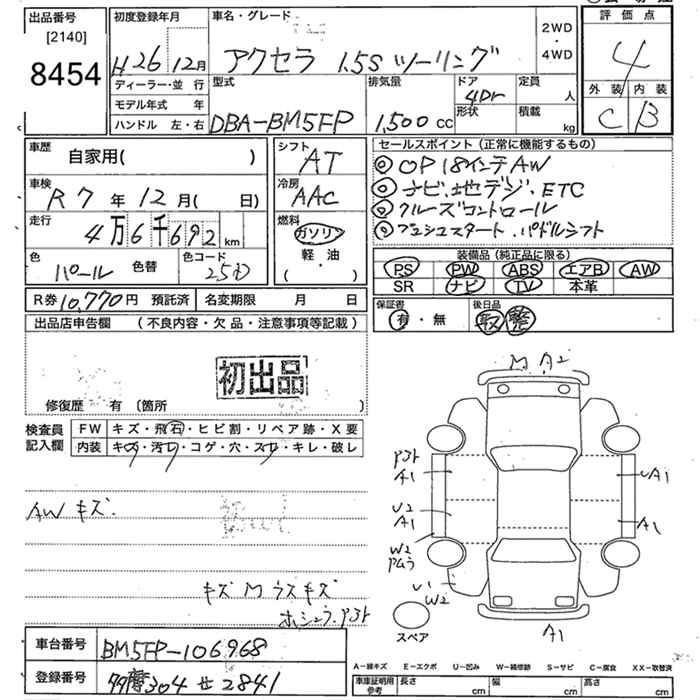 出品番号 初度登録年月 車名・グレード 評価点
[2140]
8454 H26 12月 アクセラ 1.5S ツーリング 2WD・4WD 4
ディーラー・並行 型式 排気量 ドア 定員 外装 内装
モデル年式 年 4Dr 人 C B
ハンドル 左・右 DBA-BM5FP 1,500cc 形状 積載 kg
車歴 自家用( ) シフト AT セールスポイント(正常に機能するもの)
◎OP 18インチAW
車検 R7年12月( 日) 冷房 AAC ◎ナビ.地デジ.ETC
走行 4万6千692km 燃料 ガソリン ◎クルーズコントロール
軽・油 ◎プッシュスタート.パドルシフト
色 パール 色替 色コード 25D ( )
装備品(純正品に限る)
PS PW ABS エアB AW
SR ナビ TV 本革
R券10,770円 預託済 名変期限 月 日
保証書 有・無 後日品 取 整
出品店申告欄 (不良内容・欠品・注意事項等記載)
初出品
修復歴 有 〔箇所
M A2
検査員記入欄 FW キズ・飛石・ヒビ割・リペア跡・X要
内装 キズ・汚れ・コゲ・穴・スレ・キレ・破レ
A1 A1
AWキズ.
U2
A1 A1
W2
キズMウスキズ
W2
スペア A1
車台番号 BM5FP-106968
登録番号 多摩304せ2841
A-線キズ E-エクボ U-凹み W-補修跡 S-サビ C-腐食 XX-交換済
車庫証明用参考 長さ cm 幅 cm 高さ cm